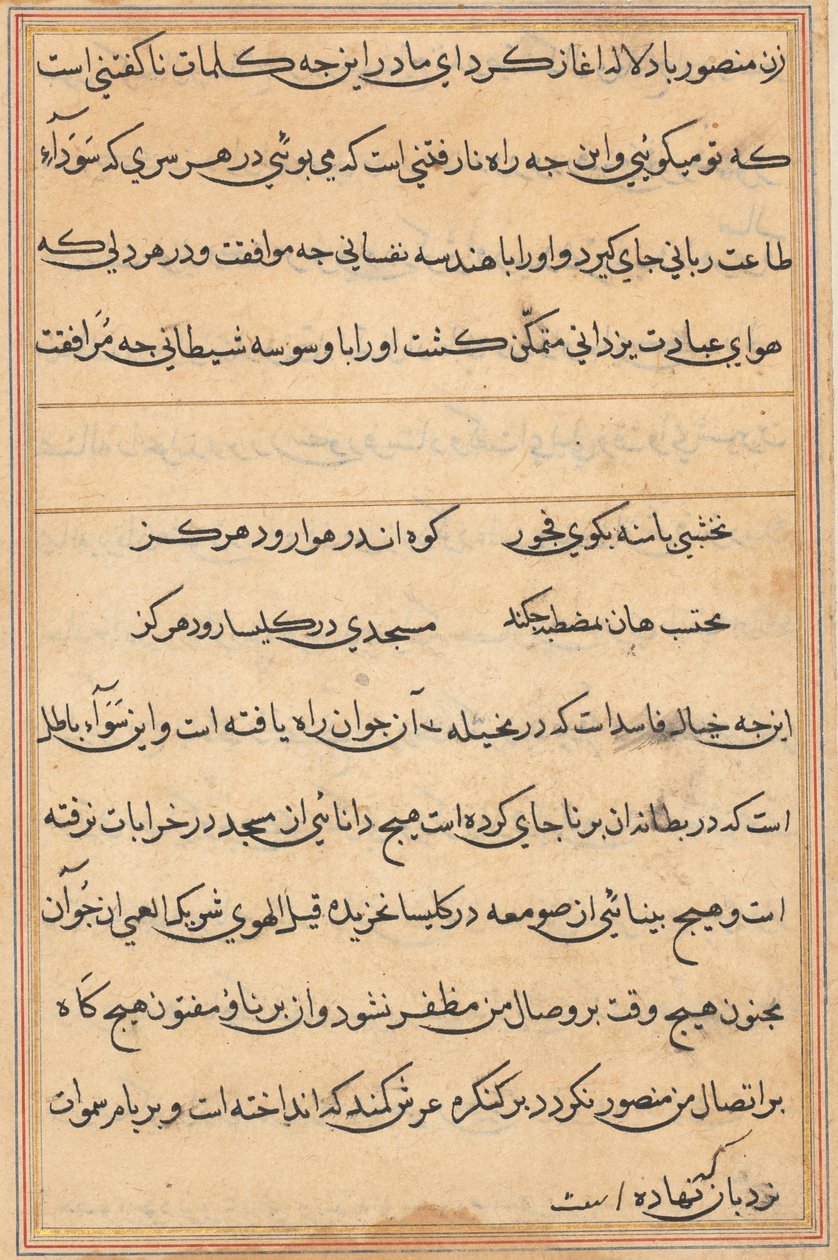 زن منصور با دلاله اغاز کرد اي مادر اين جه کلمات ناکفتني است
که تو ميکوئي و اين جه راه نارفتني است که مي بوئي در هر سري که سَوَدآءِ
طاعت رباني جاي کيرد و اورا با هندسه نفساني جه موافقت و در هر دلي که
هواي عبادت يزداني متمکّن کشت اورا با وسوسه شيطاني جه مُرَافقت
نخشبي با منه بکوي فجور کوه اندر هوا رود هرکز
محتسب هان بمضطبه جکند مسجدي در کليسا رود هرکز
اين جه خيال فاسد است که در مخيله آن جوان راه يافته است و اين سَوَآءِ باطل
است که در بطانه ان برنا جاي کرده است هيج دانائي از مسجد در خرابات نرفته
است و هيج بينائي از صومعه در کليسا نخزيده قيل الهوي شريک العمي ان جُوآن
مجنون هيج وقت بر وصال من مظفر نشود و ان برناؤ مفتون هيج کَاه
بر اتصال من منصور نکردد بر کنکره عرش کمند که انداخته است و بر بام سموات
نردبان که نهاده است